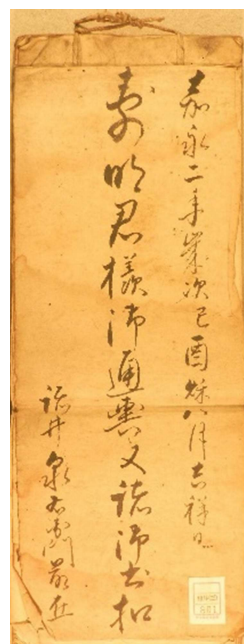 嘉永二年歳次己酉秌八月吉祥日
寿明君様御通輿又諸御書扣
諸井泉右衛門